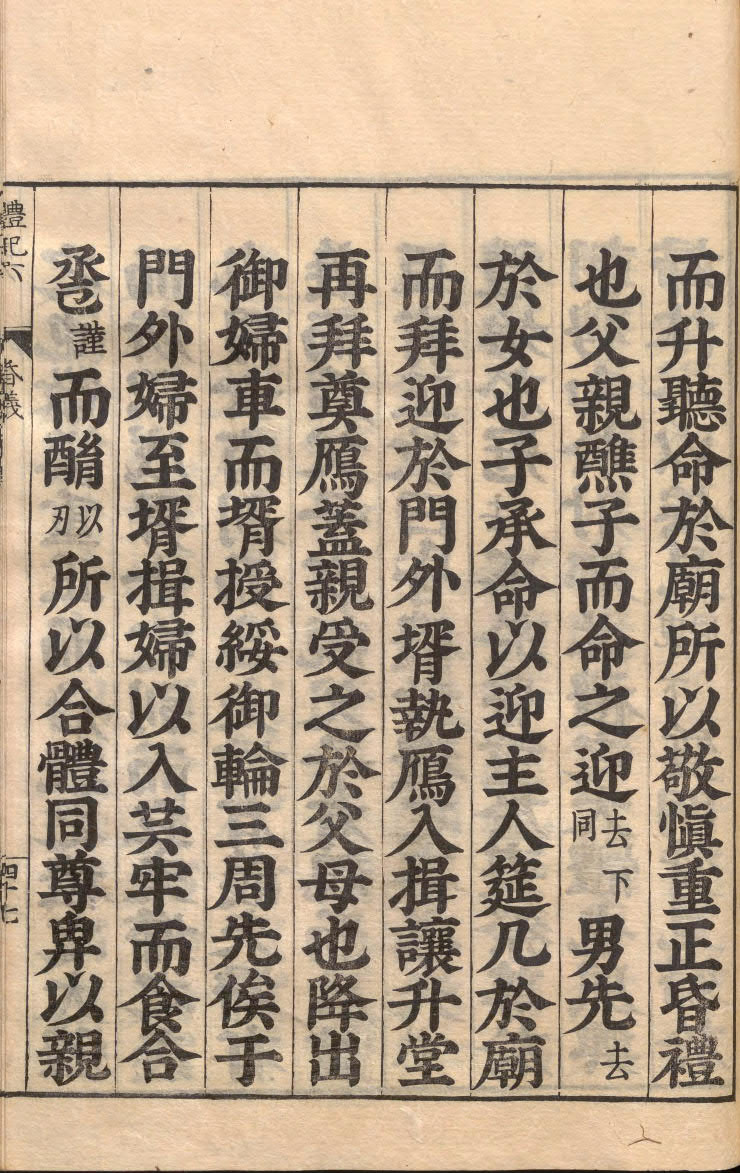 而升聽命於廟所以敬愼重正昏禮
也父親醮子而命之迎去下同男先去
於女也子承命以迎主人筵几於廟
而拜迎於門外壻執鴈入揖讓升堂
再拜奠鴈蓋親受之於父母也降出
御婦車而壻授綏御輪三周先俟于
門外婦至壻揖婦以入共牢而食合
巹謹而酳以刃所以合體同尊卑以親
禮記六 昏義 四十七